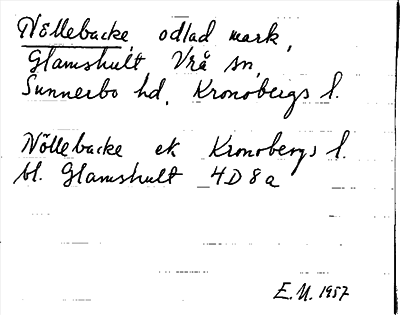 Nöllebacke, odlad mark,
Glamshult Vrå sn,
Sunnerbo hd, Kronobergs l.
Nöllebacke ek Kronobergs l.
bl. Glamshult 4D8a
E.U. 1957